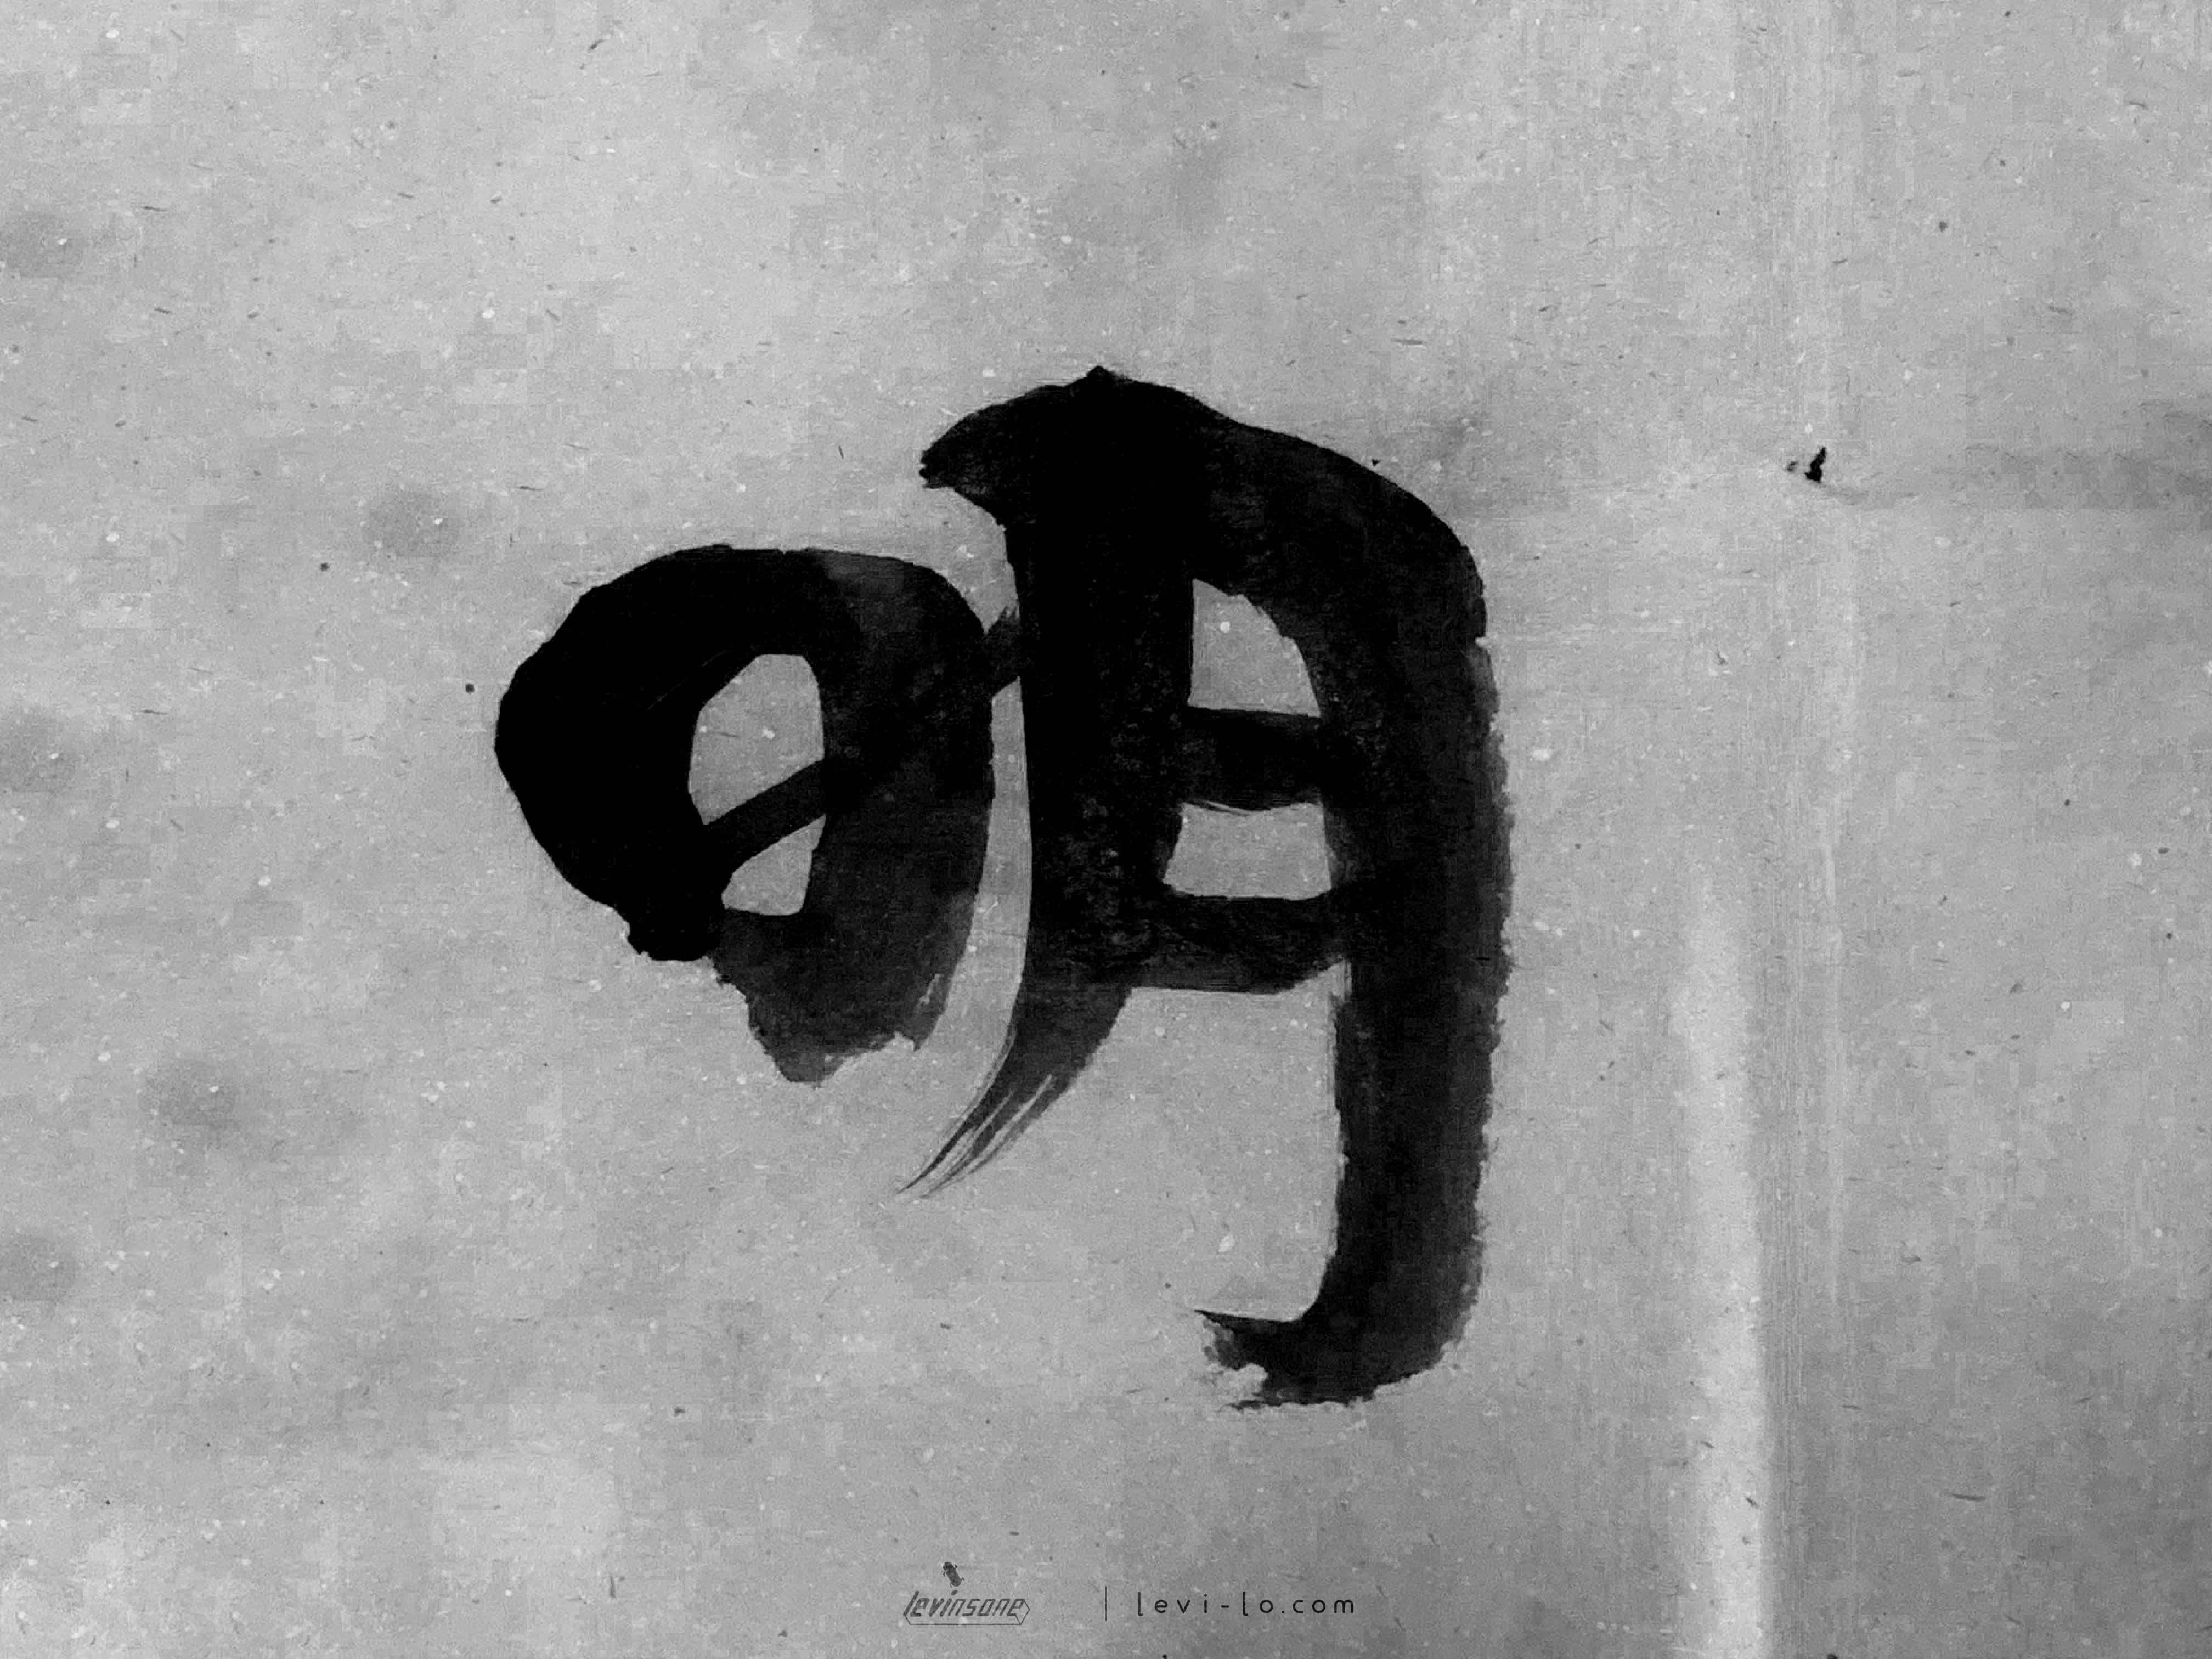 明
levinsane | levi-lo.com